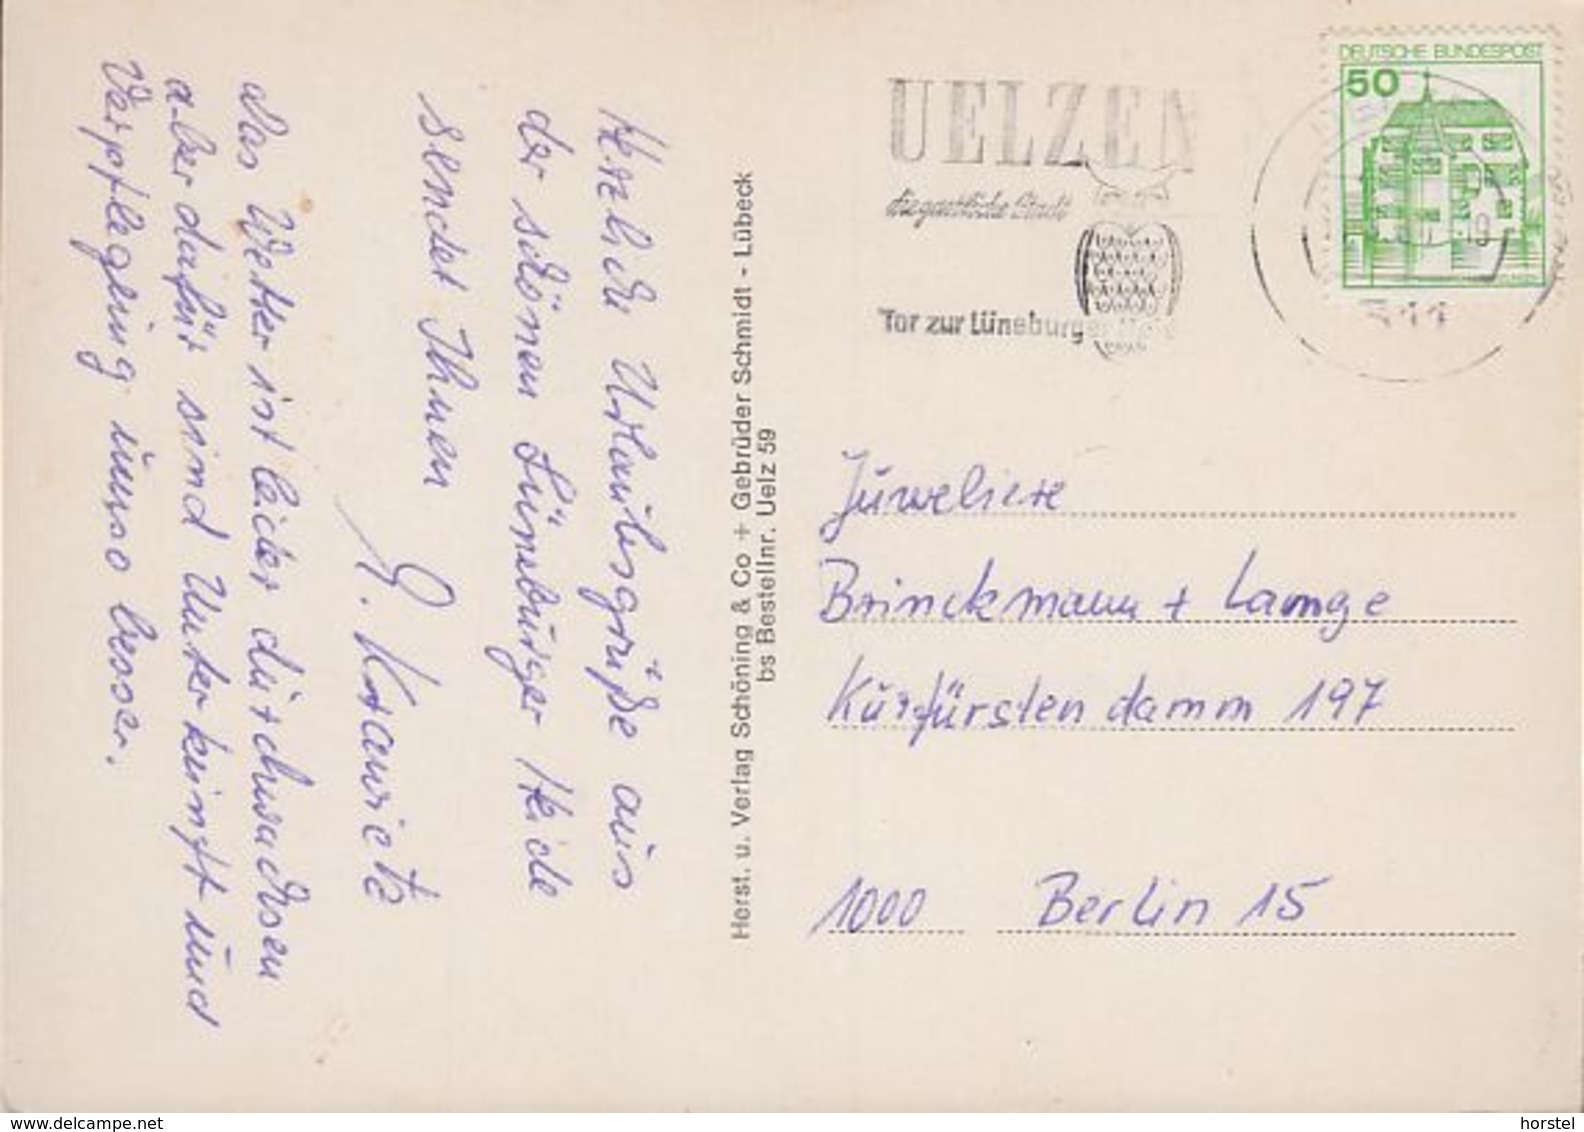 Herzliche Urlaubsgrüße aus
der schönen Lüneburger Heide
sendet Ihnen
das Wetter ist leider durchwachsen
aber dafür sind Unterkunft und
Verpflegung umso besser.
Herst. u. Verlag Schöning & Co + Gebrüder Schmidt - Lübeck
bs Bestellnr. Uelz 59
UELZEN
die gastliche Stadt
Tor zur Lüneburger
DEUTSCHE BUNDESPOST
50
Juweliere
Brinckmann + Lange
Kurfürstendamm 197
1000 Berlin 15
www.delcampe.net
horstel